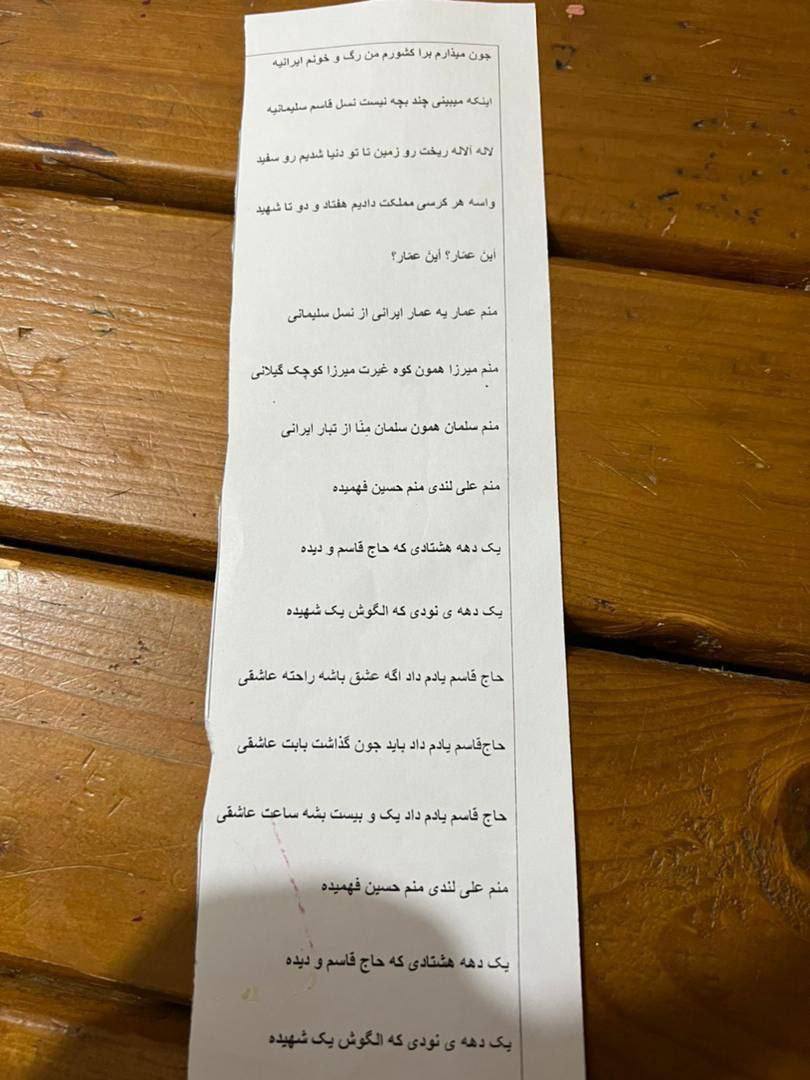 جون میذارم برا کشورم من رگ و خونم ایرانیه
اینکه میبینی چند بچه نیست نسل قاسم سلیمانیه
لاله آلاله ریخت رو زمین تا تو دنیا شدیم رو سفید
واسه هر کرسی مملکت دادیم هفتاد و دو تا شهید
أینَ عمّار؟ أینَ عمّار؟
منم عمار یه عمار ایرانی از نسل سلیمانی
منم میرزا همون کوه غیرت میرزا کوچک گیلانی
منم سلمان همون سلمان مِنّا از تبار ایرانی
منم علی لندی منم حسین فهمیده
یک دهه هشتادی که حاج قاسم و دیده
یک دهه ی نودی که الگوش یک شهیده
حاج قاسم یادم داد اگه عشق باشه راحته عاشقی
حاج‌قاسم یادم داد باید جون گذاشت بابت عاشقی
حاج قاسم یادم داد یک و بیست بشه ساعت عاشقی
منم علی لندی منم حسین فهمیده
یک دهه هشتادی که حاج قاسم و دیده
یک دهه ی نودی که الگوش یک شهیده